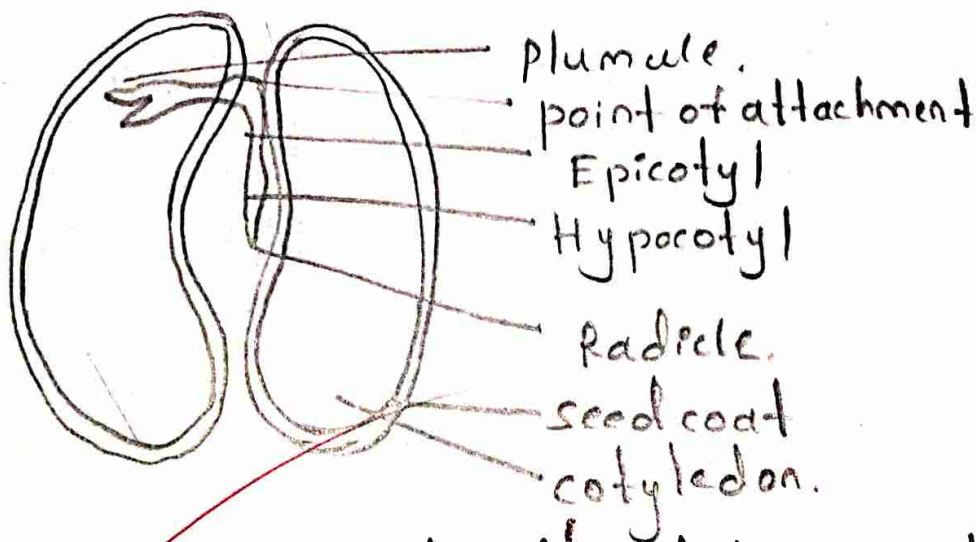 Plumule.
point of attachment
Epicotyl
Hypocotyl
Radicle.
seed coat
cotyledon.